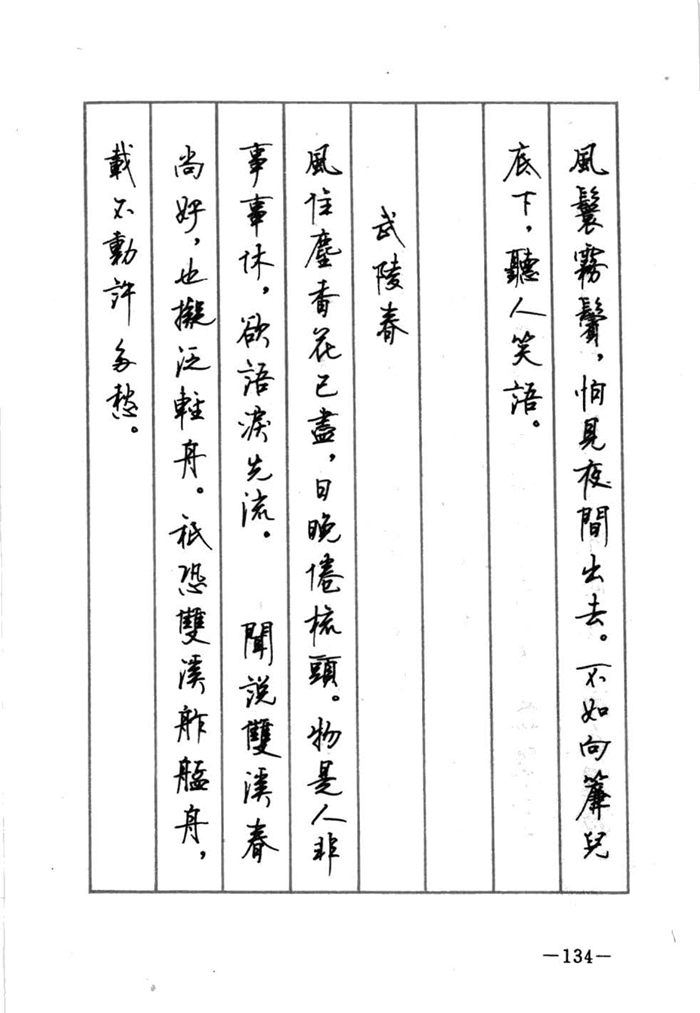 風鬟霧鬢，怕見夜間出去。不如向簾兒
底下，聽人笑語。
武陵春
風住塵香花已盡，日晚倦梳頭。物是人非
事事休，欲語淚先流。　聞說雙溪春
尚好，也擬泛輕舟。祇恐雙溪舴艋舟，
載不動許多愁。
—134—